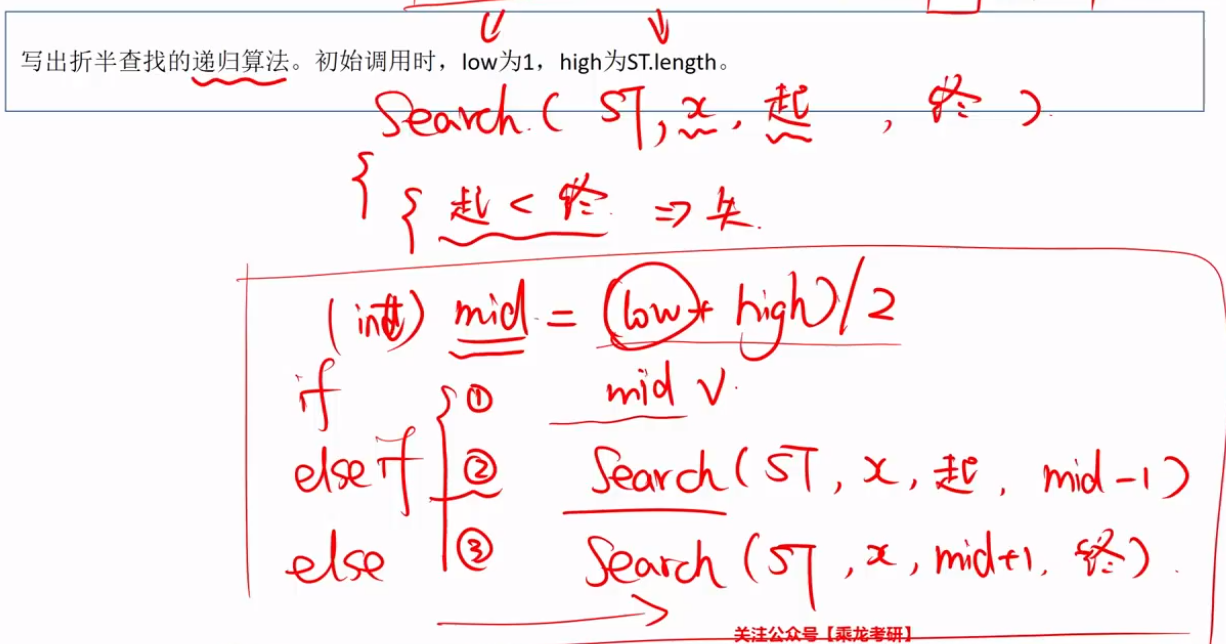 写出折半查找的递归算法。初始调用时，low为1，high为ST.length。
Search(ST,x,起,终)
{
{起<终 => 失
(int) mid = (low+high)/2
if ① mid √
else if ② Search(ST,x,起,mid-1)
else ③ Search(ST,x,mid+1,终)
关注公众号【乘龙考研】